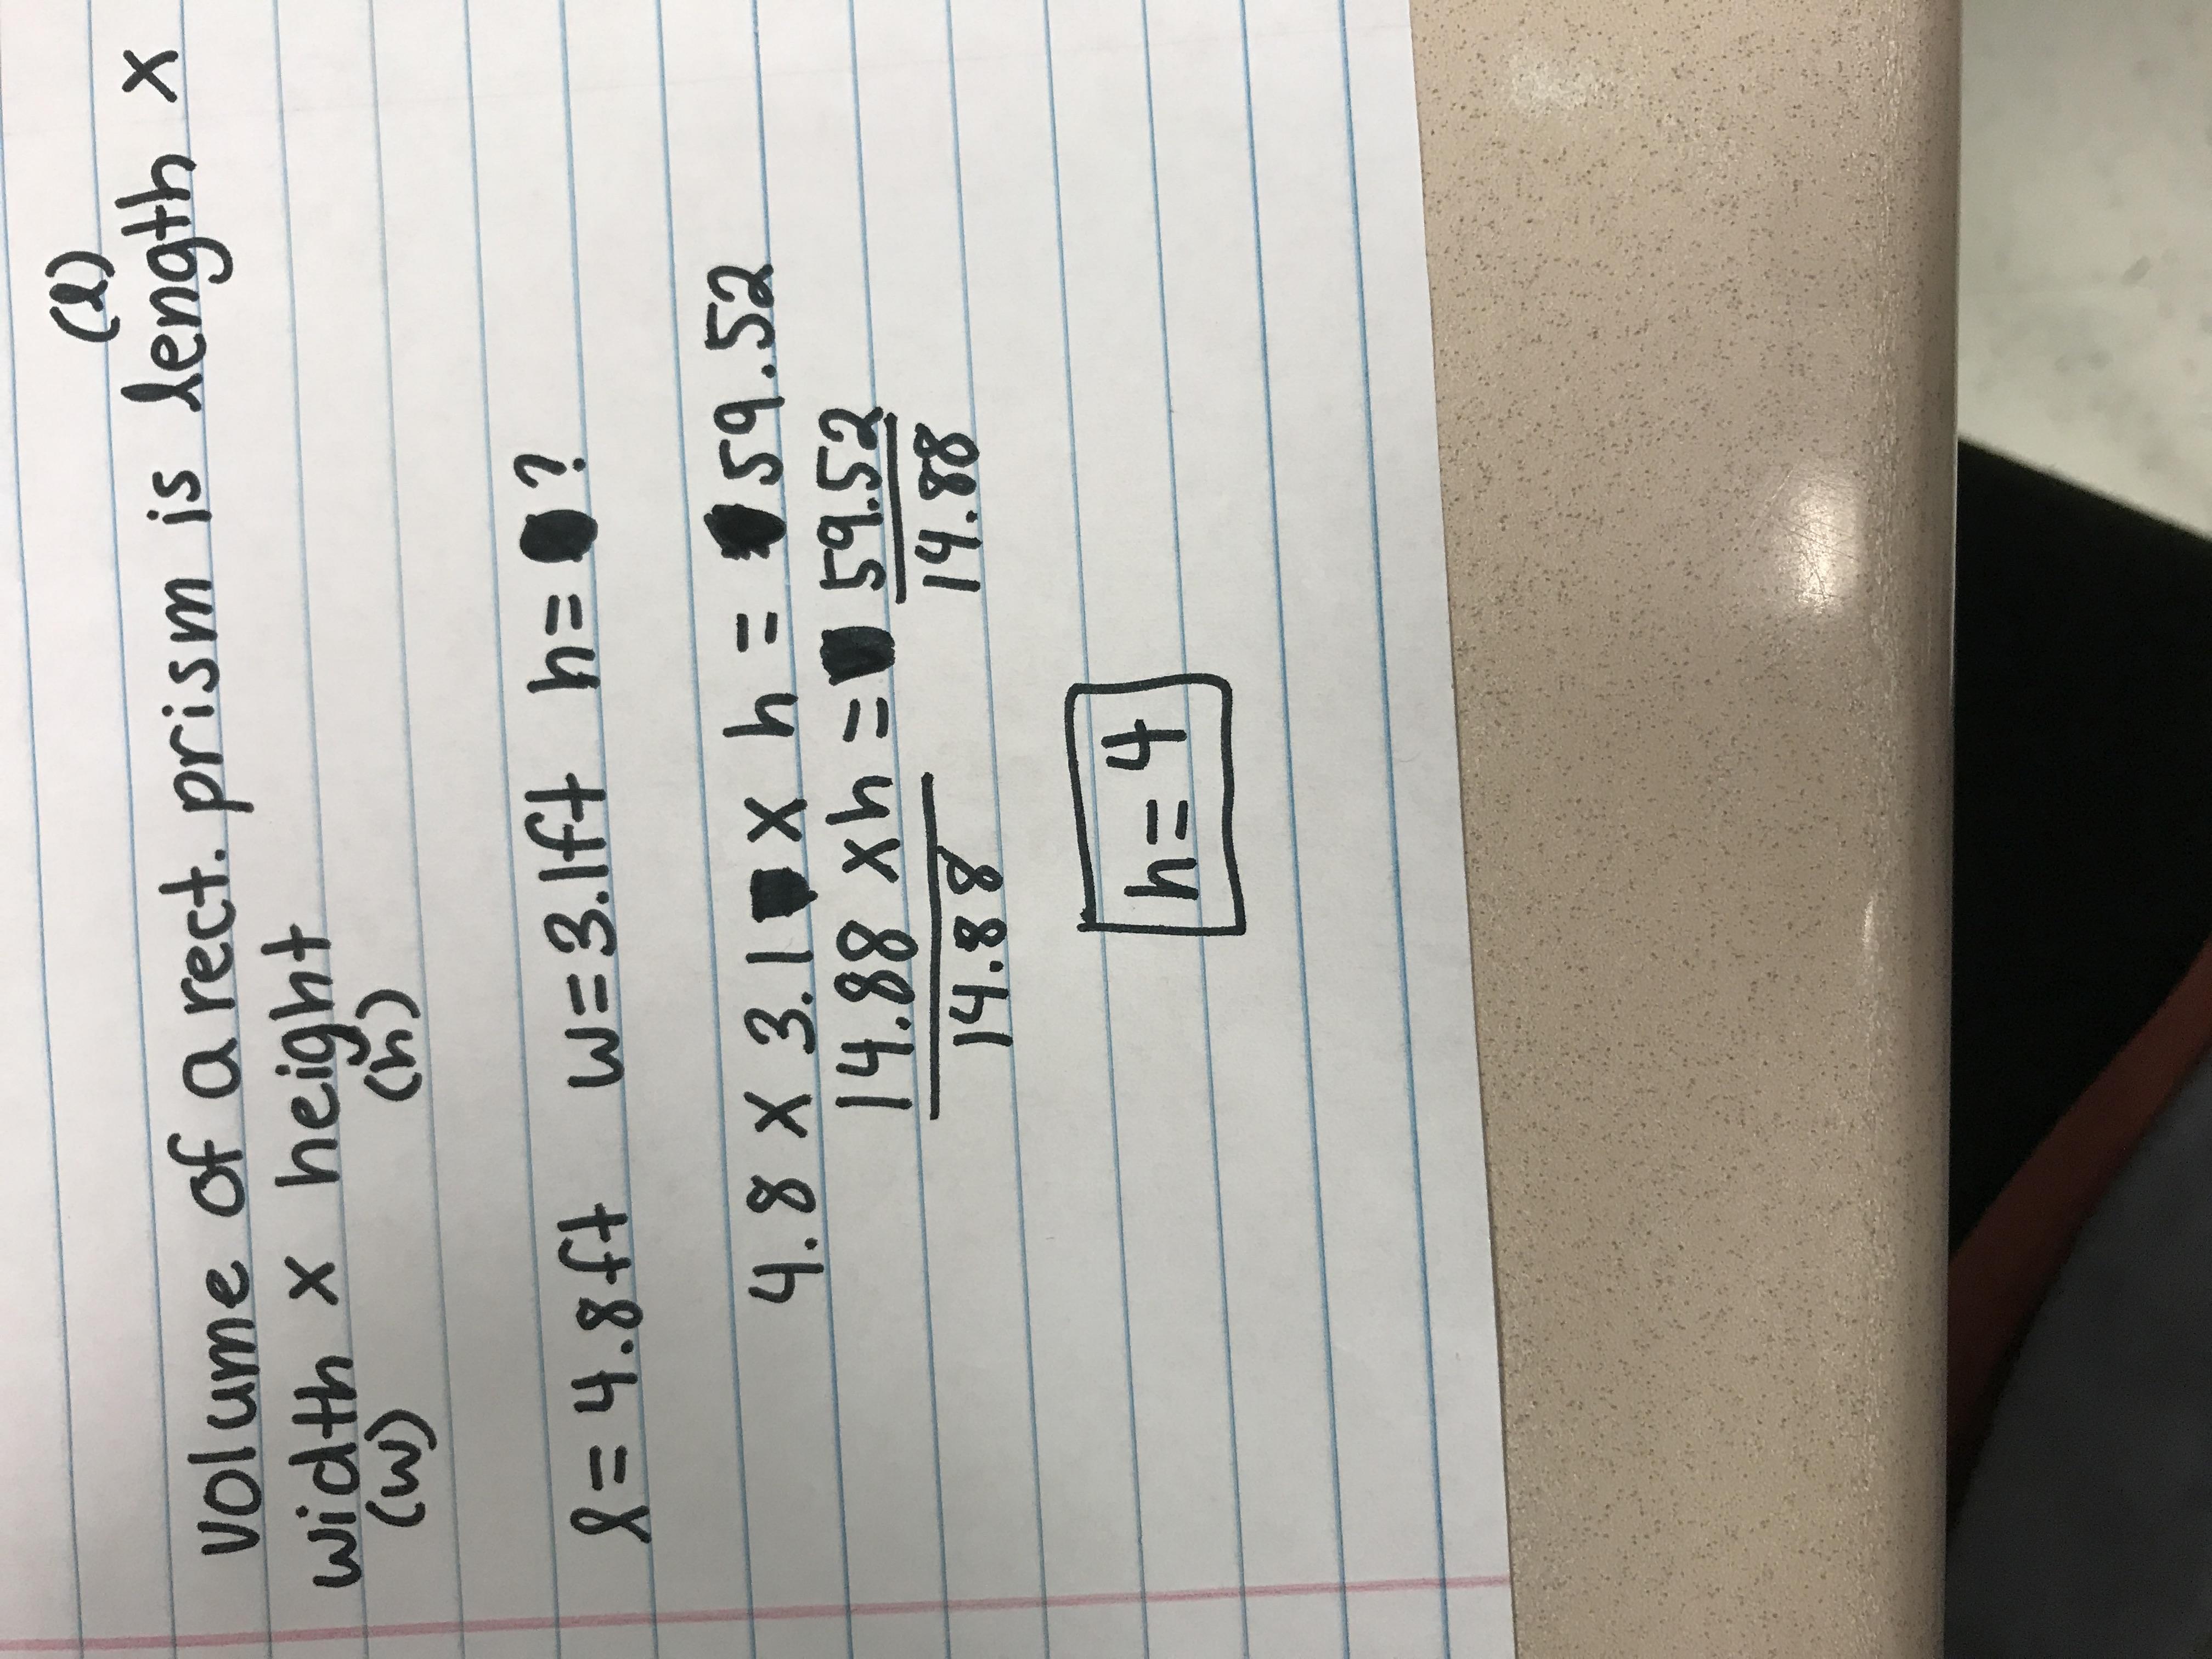 (l)
Volume of a rect. prism is length x
width x height
(w) (h)
l = 4.8ft w=3.1ft h= ?
4.8 x 3.1 x h = 59.52
14.88 x h = 59.52
14.88 14.88
h=4